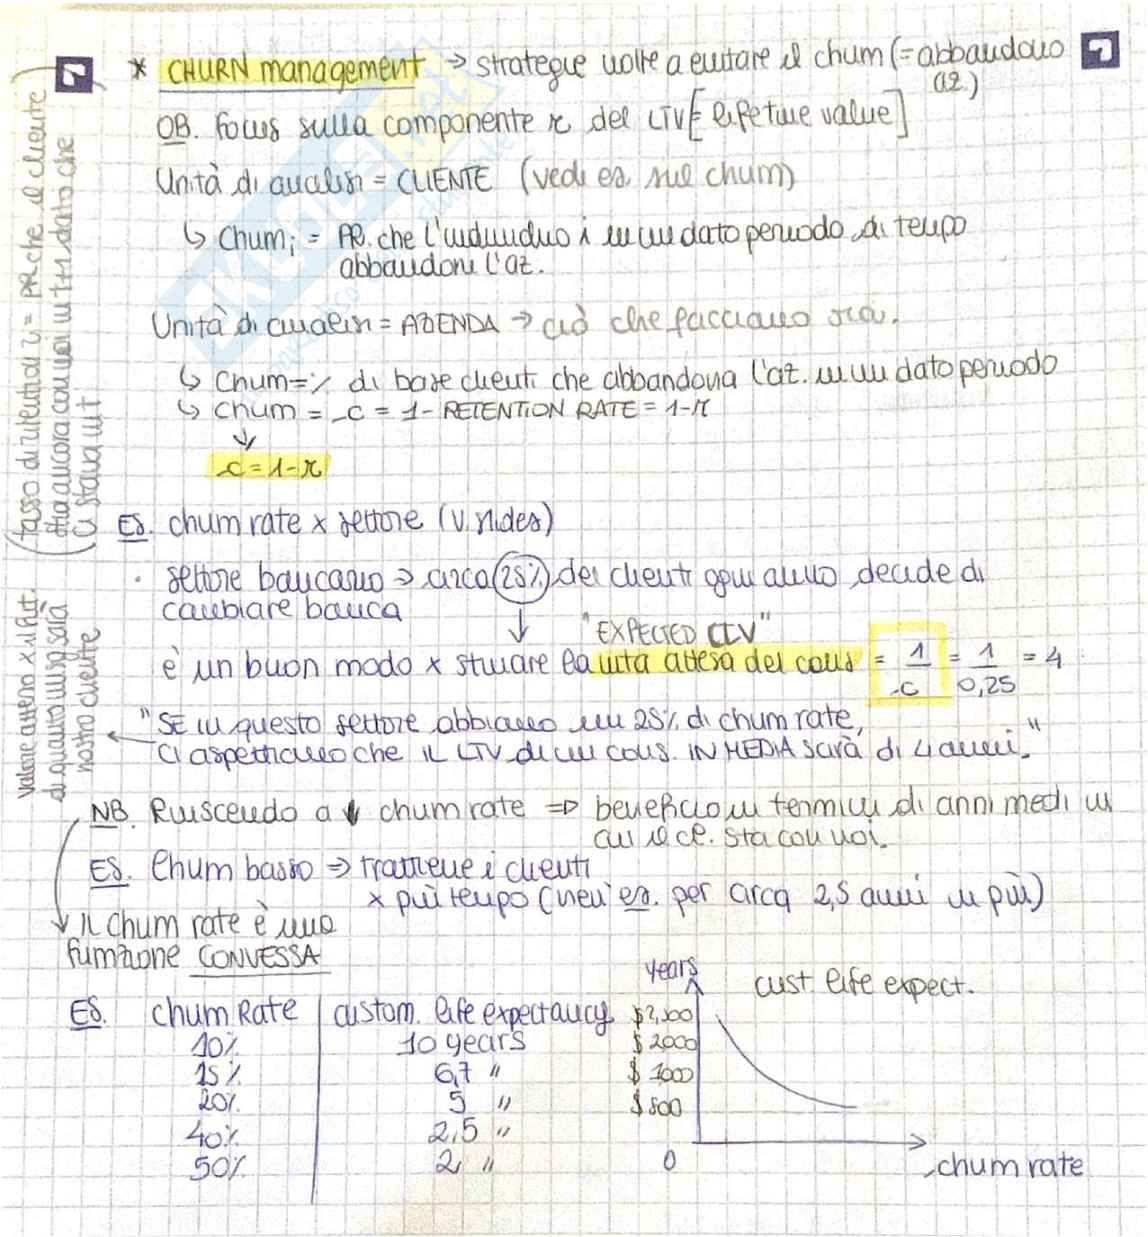 * CHURN management → strategie volte a evitare il churn (= abbandono az.)
OB. Focus sulla componente r del LTV [lifetime value]
Unità di analisi = CLIENTE (vedi es. sul churn)
↳ Churn i = PR. che l'individuo i in un dato periodo di tempo
abbandoni l'az.
Unità di analisi = AZIENDA → ciò che facciamo ora.
↳ Churn = % di base clienti che abbandona l'az. in un dato periodo
↳ Churn = c = 1 - RETENTION RATE = 1-r
↓
c = 1-r
(tasso di retention r = PR. che il cliente
stia ancora con noi in t+1, dato che
ci stava in t
ES. churn rate x settore (v. slides)
· settore bancario → circa 25% dei clienti ogni anno decide di
cambiare banca
↓ "EXPECTED CLV"
è un buon modo x stimare la vita attesa del cons = 1/c = 1/0,25 = 4
"SE in questo settore abbiamo un 25% di churn rate,
ci aspettiamo che IL LTV di un cons. IN MEDIA sarà di 4 anni."
valore atteso x il fut.
di quanto un sarà
nostro cliente
NB. Riuscendo a ↓ churn rate ⇒ beneficio in termini di anni medi in
cui il cl. sta con noi.
ES. Churn basso → trattiene i clienti
x più tempo (nell'es. per circa 2,5 anni in più)
↓ il churn rate è una
funzione CONVESSA
ES. churn Rate | custom. life expectancy
10% 10 years
15% 6,7 "
20% 5 "
40% 2,5 "
50% 2 "
years
cust life expect.
$2,500
$2000
$1000
$500
0
churn rate